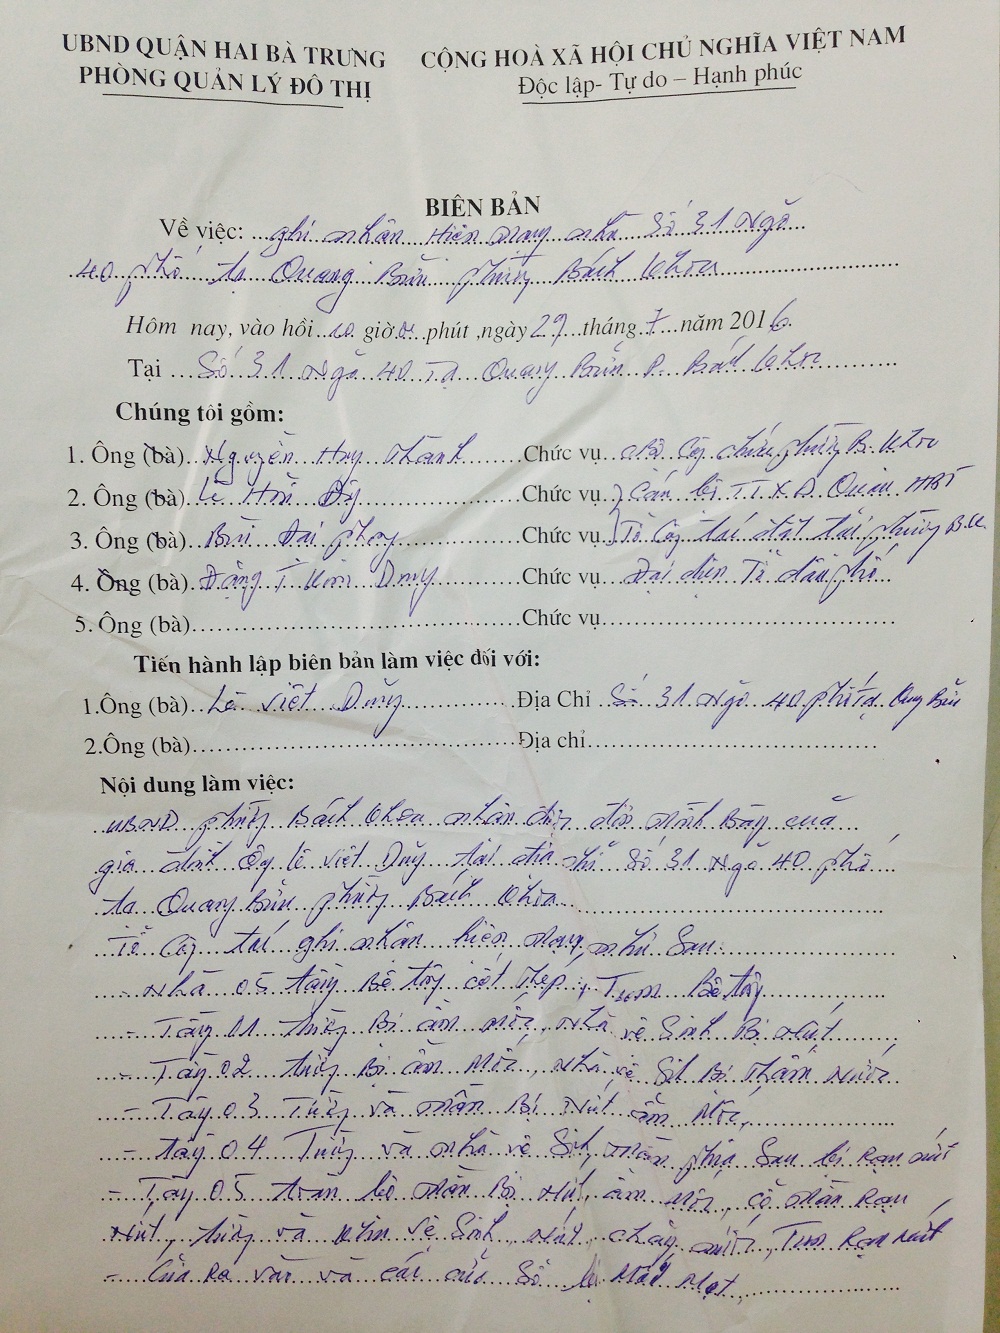 UBND QUẬN HAI BÀ TRƯNG
PHÒNG QUẢN LÝ ĐÔ THỊ
CỘNG HOÀ XÃ HỘI CHỦ NGHĨA VIỆT NAM
Độc lập- Tự do – Hạnh phúc
BIÊN BẢN
Về việc: ghi nhận hiện trạng nhà Số 31 Ngõ
40 phố Tạ Quang Bửu phường Bách Khoa
Hôm nay, vào hồi 10 giờ 0 phút ,ngày 29 tháng 7 năm 2016.
Tại Số 31 Ngõ 40 Tạ Quang Bửu P. Bách Khoa
Chúng tôi gồm:
1. Ông (bà) Nguyễn Huy Thành Chức vụ phường B. Khoa
2. Ông (bà) Lê Chức vụ Cán bộ T.T.X.D. Quận HBT
3. Ông (bà) Bùi Đại Chức vụ Tổ công tác phường B.K
4. Ông (bà) Đặng T Kim Dung Chức vụ Đại diện Tổ dân phố
5. Ông (bà) Chức vụ
Tiến hành lập biên bản làm việc đối với:
1.Ông (bà) Lê Việt Dũng Địa Chỉ Số 31 Ngõ 40 phố Tạ Quang Bửu
2.Ông (bà) Địa chỉ
Nội dung làm việc:
UBND phường Bách Khoa nhận được đơn trình bày của
gia đình ông Lê Việt Dũng tại địa chỉ Số 31 Ngõ 40 phố
Tạ Quang Bửu phường Bách Khoa
Tổ công tác ghi nhận hiện trạng như sau
- Nhà 05 tầng Bê tông cốt thép, Tum Bê tông
- Tầng 01 tường Bị ẩm mốc, nhà vệ sinh Bị nứt
- Tầng 02 tường Bị ẩm mốc, nhà vệ sinh Bị thấm nước
- Tầng 03 Tường và trần Bị nứt ẩm mốc,
- Tầng 04 Tường và nhà vệ sinh, trần phía sau bị rạn nứt
- Tầng 05 toàn bộ trần Bị nứt, ẩm mốc, có trần rạn
nứt, tường và khu vệ sinh nứt, chảy nước, Tum rạn nứt
- Cửa ra vào và các cửa sổ bị mối mọt,